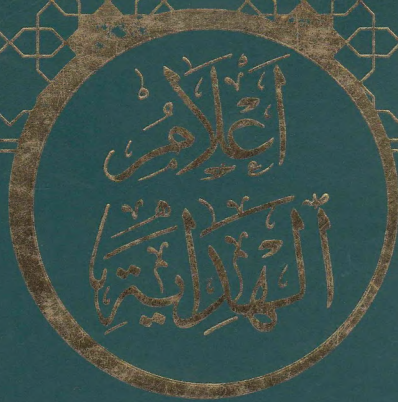 أعلام
الهداية